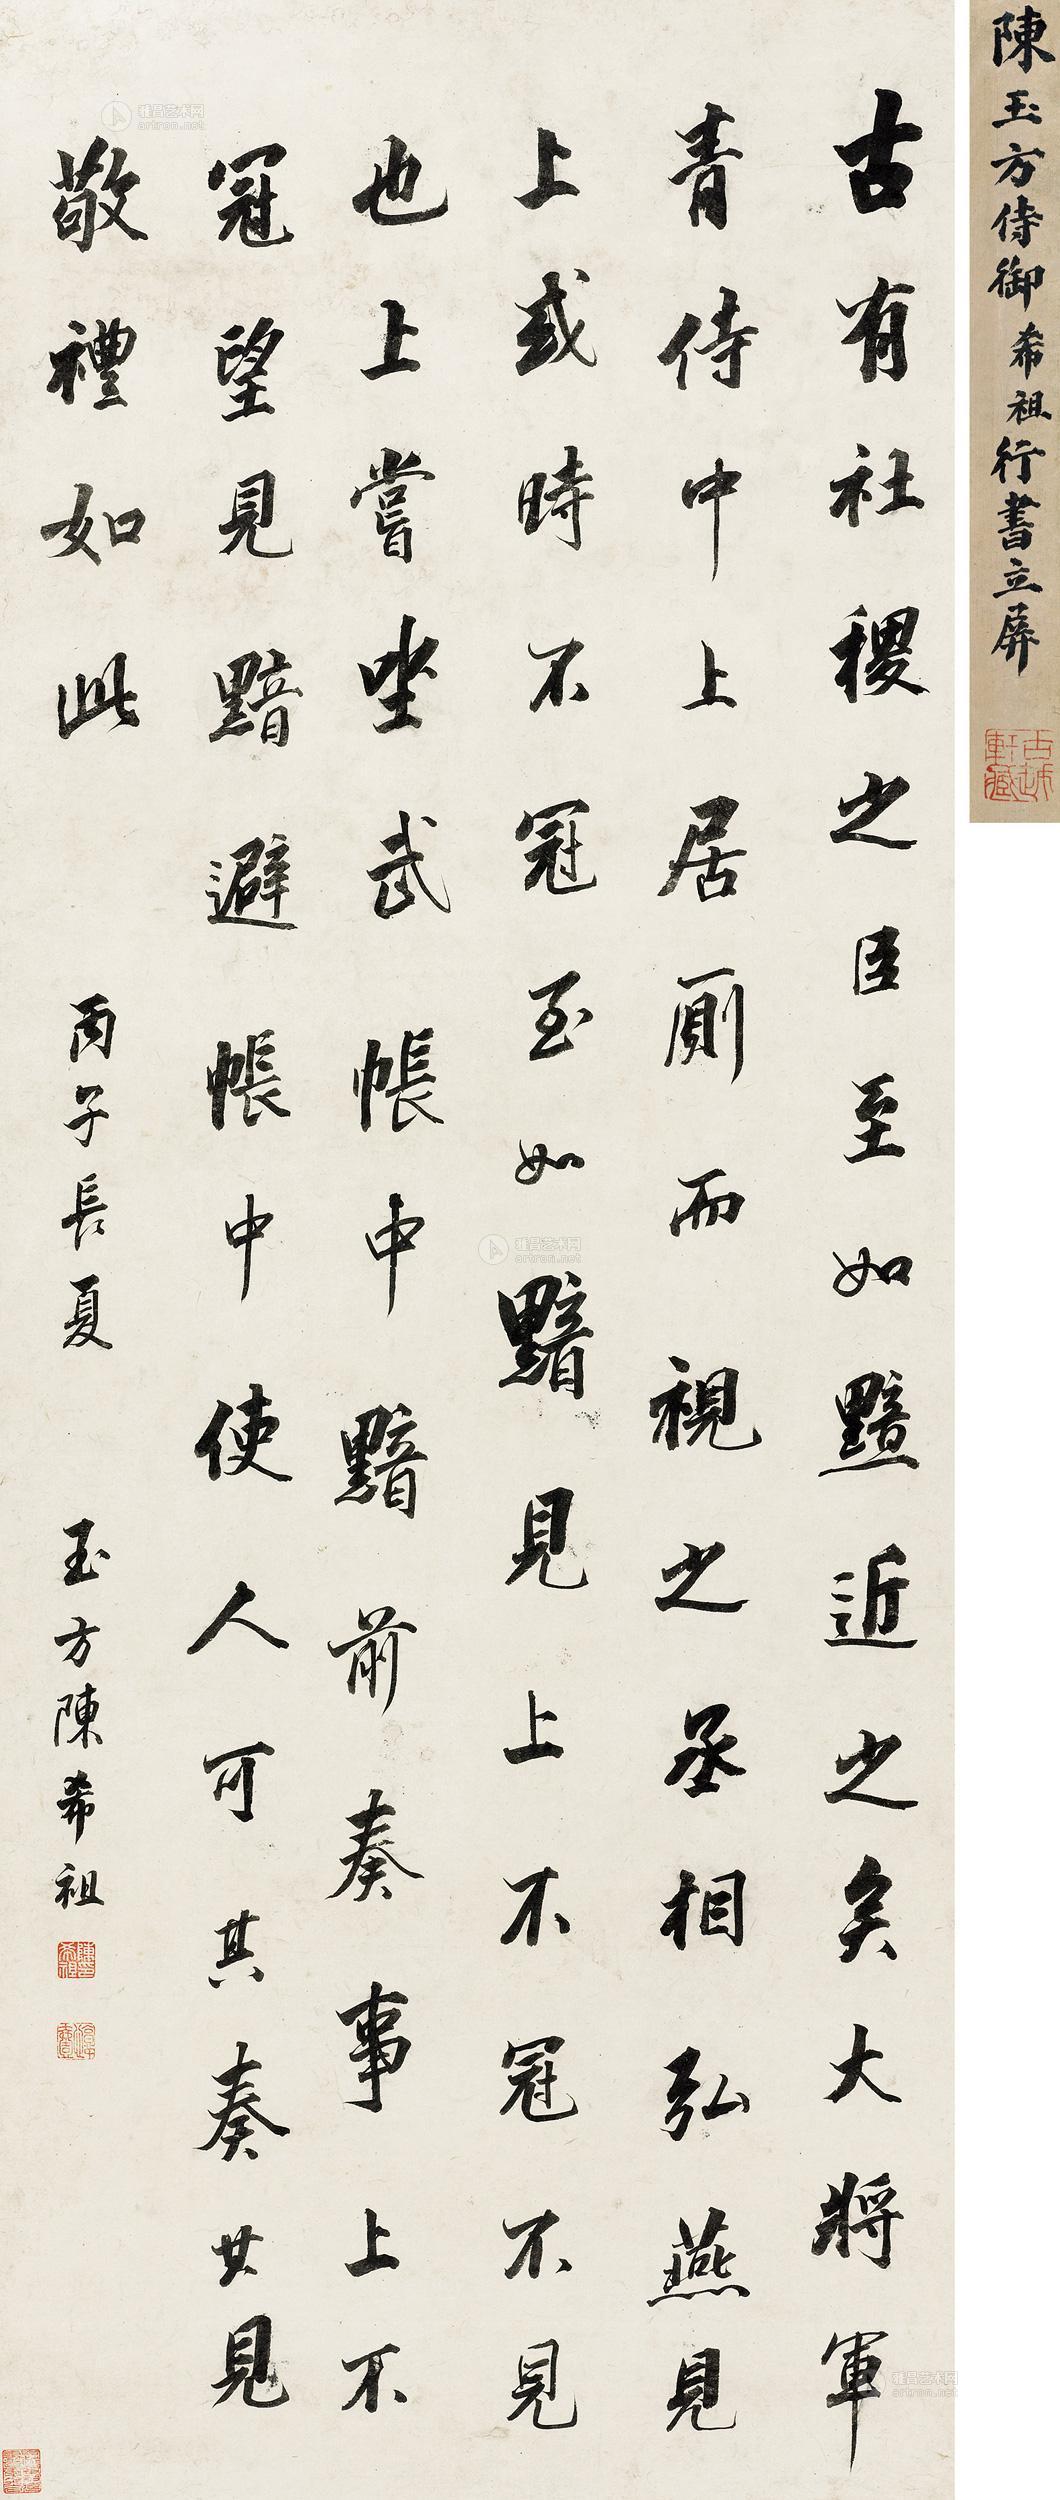 古有社稷之臣至如黯近之矣大將軍
青侍中上居廁而視之丞相弘燕見
上或時不冠至如黯見上不冠不見
也上嘗坐武帳中黯前奏事上不
冠望見黯避帳中使人可其奏其見
敬禮如此
丙子長夏
玉方陳希祖
陳玉方侍御希祖行書立屏
古越軒藏
雅昌艺术网
artron.net
雅昌艺术网
artron.net
雅昌艺术网
artron.net